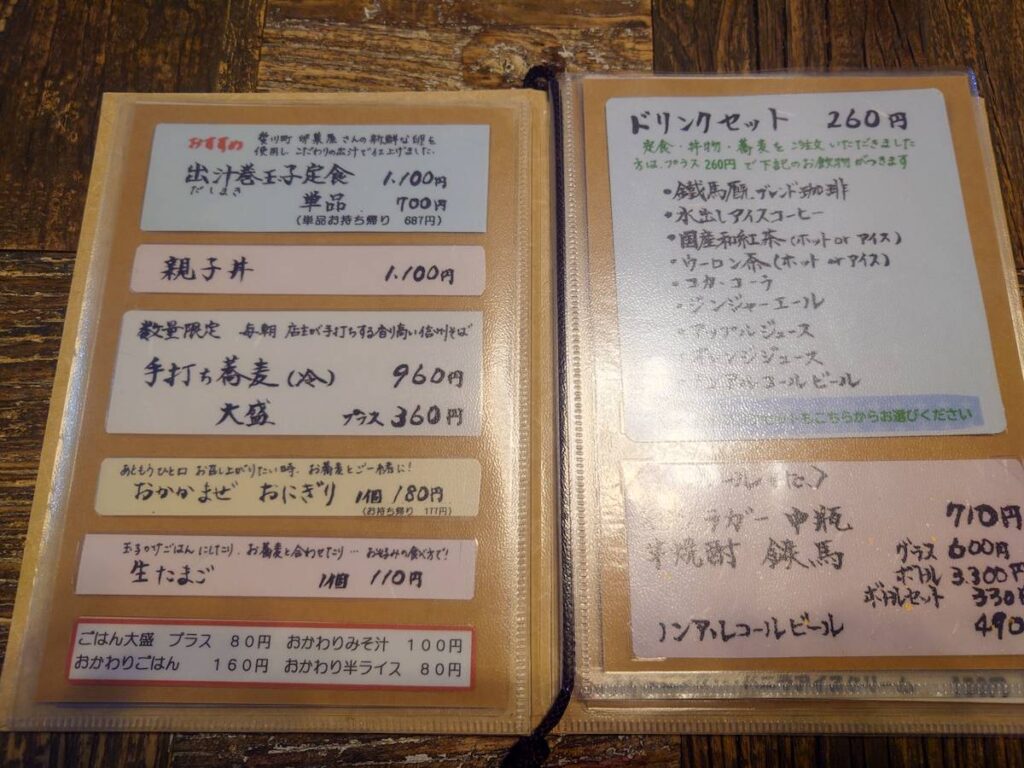 おすすめ
愛川町 卵菓屋さんの新鮮な卵を
使用し、こだわりの出汁で仕上げました。
出汁巻玉子定食 1.100円
だしまき
単品 700円
(単品お持ち帰り 687円)
親子丼 1.100円
数量限定 毎朝 店主が手打ちする香り高い信州そば
手打ち蕎麦(冷) 960円
大盛 プラス 360円
あともうひと口 お召し上がりたい時、お蕎麦とご一緒に!
おかかまぜ おにぎり 1個 180円
(お持ち帰り 177円)
玉子かけごはんにしたり、お蕎麦と合わせたり… お好みの食べ方で!
生たまご 1個 110円
ごはん大盛 プラス 80円 おかわりみそ汁 100円
おかわりごはん 160円 おかわり半ライス 80円
ドリンクセット 260円
定食・丼物・蕎麦をご注文いただきました
方は、プラス260円で下記のお飲物がつきます
・鐵馬厩ブレンド珈琲
・水出しアイスコーヒー
・国産和紅茶(ホット or アイス)
・ウーロン茶(ホット or アイス)
・コカ・コーラ
・ジンジャーエール
・アップルジュース
・オレンジジュース
・ノンアルコールビール
もこちらからお選びください
ラガー 中瓶 710円
焼酎 鐵馬 グラス 600円
ボトル 3.300円
ボトルセット 330
ノンアルコールビール 490
バニラアイスクリーム